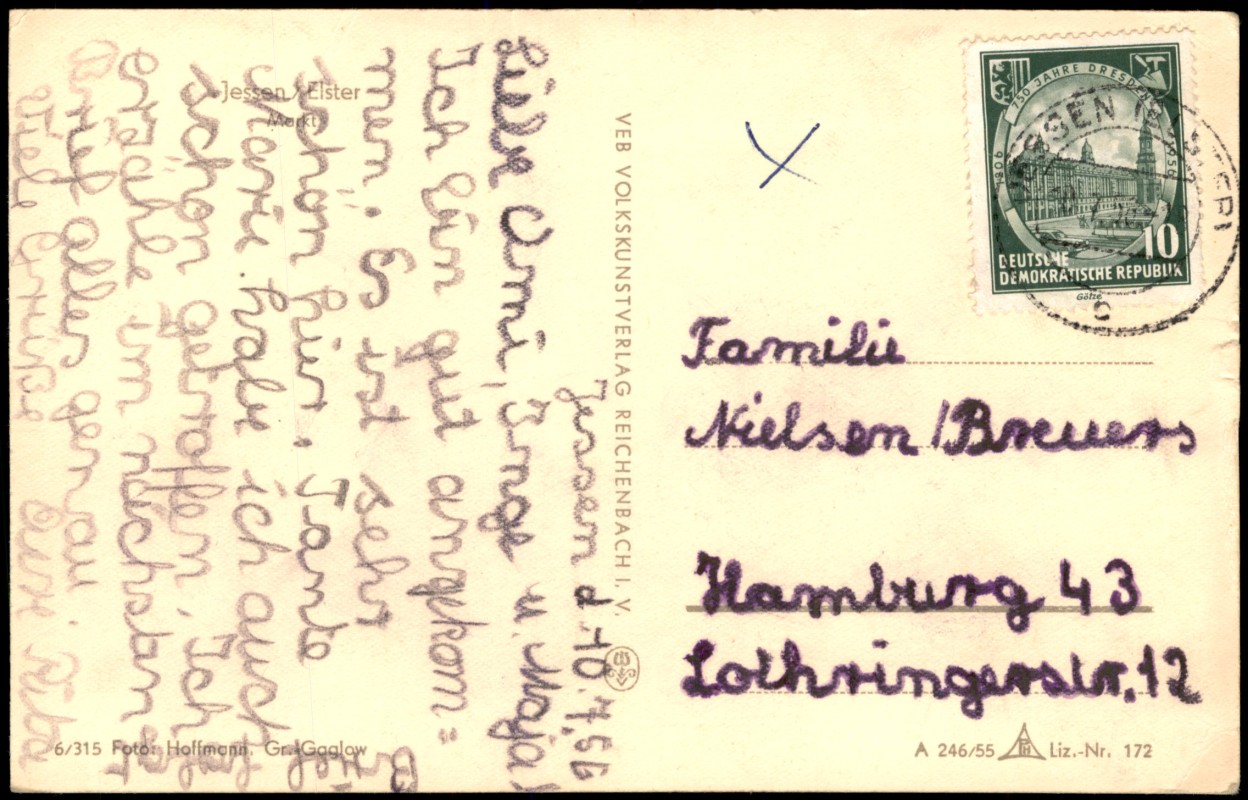 Jessen / Elster
Markt
Jessen d. 10.7.56
Liebe Omi, Inge u. Maja!
Ich bin gut angekom=
men. Es ist sehr
schön hier. Tante
habe ich auch
schon getroffen. Ich
erzähle im nächsten
Brief alles genau
Viele Grüße Eure
6/315 Foto: Hoffmann, Gr.-Gaglow
VEB VOLKSKUNSTVERLAG REICHENBACH I. V.
750 JAHRE DRESDEN
1206
1956
10
DEUTSCHE
DEMOKRATISCHE REPUBLIK
Götze
JESSEN
Familie
Nielsen / Breuers
Hamburg 43
Lothringerstr. 12
A 246/55 Liz.-Nr. 172